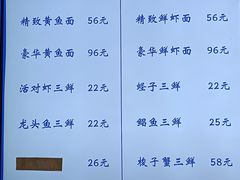 精致黄鱼面 56元
豪华黄鱼面 96元
活对虾三鲜 22元
龙头鱼三鲜 22元
26元
精致鲜虾面 56元
豪华鲜虾面 96元
蛏子三鲜 22元
鲳鱼三鲜 25元
梭子蟹三鲜 58元